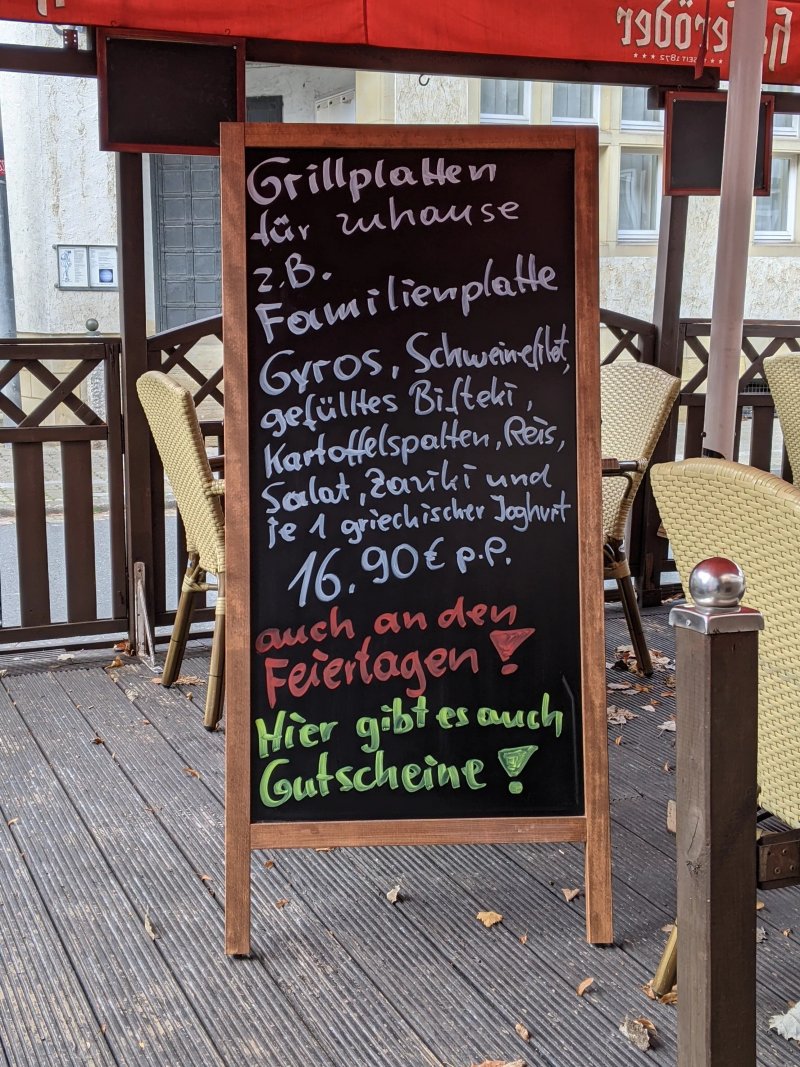 Grillplatten
für zuhause
z.B.
Familienplatte
Gyros, Schweinefilet,
gefülltes Bifteki,
Kartoffelspalten, Reis,
Salat, Zaziki und
je 1 griechischer Joghurt
16.90€ p.P.
auch an den
Feiertagen!
Hier gibt es auch
Gutscheine!